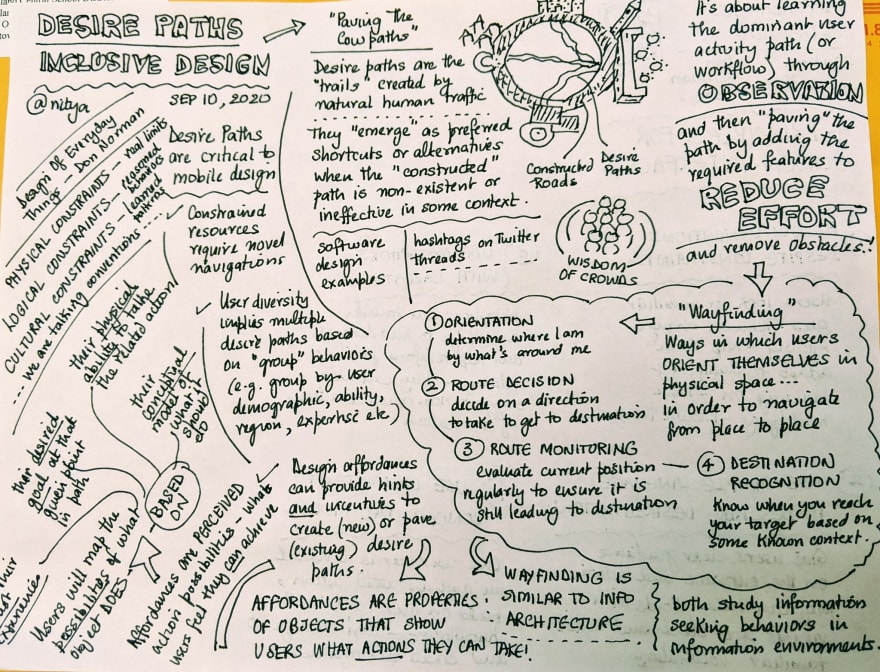 DESIRE PATHS
INCLUSIVE DESIGN
@nitya
SEP 10, 2020
Design Of Everyday
Things - Don Norman
PHYSICAL CONSTRAINTS - real limits
LOGICAL CONSTRAINTS - reasoned behaviors
CULTURAL CONSTRAINTS - learned patterns
... we are talking conventions ....
Desire Paths
are critical to
mobile design
Constrained
resources
require novel
navigations
User diversity
implies multiple
desire paths based
on "group" behaviors
(e.g. group by user
demographic, ability,
region, expertise etc)
Design affordances
can provide hints
and incentives to
create (new) or pave
(existing) desire
paths.
"Paving the
Cowpaths"
Desire paths are the
"trails" created by
natural human traffic
They "emerge" as preferred
shortcuts or alternatives
when the "constructed"
path is non-existent or
ineffective in some context.
software
design
examples
hashtags on Twitter
threads
Constructed
Roads
Desire
Paths
WISDOM
OF CROWDS
It's about learning
the dominant user
activity path (or
workflow) through
OBSERVATION
and then "paving" the
path by adding the
required features to
REDUCE
EFFORT
and remove obstacles!
"Wayfinding"
Ways in which users
ORIENT THEMSELVES in
physical space...
in order to navigate
from place to place
1 ORIENTATION
determine where I am
by what's around me
2 ROUTE DECISION
decide on a direction
to take to get to destination
3 ROUTE MONITORING
evaluate current position
regularly to ensure it is
still leading to destination
4 DESTINATION
RECOGNITION
Know when you reach
your target based on
some known context.
WAYFINDING IS
SIMILAR TO INFO
ARCHITECTURE
both study information
seeking behaviors in
information environments.
AFFORDANCES ARE PROPERTIES
OF OBJECTS THAT SHOW
USERS WHAT ACTIONS THEY CAN TAKE!
Affordances are PERCEIVED
action possibilities - what
users feel they can achieve
Users will map the
possibilities of what
object DOES
BASED
ON
their conceptual
model of
what it
should
do
their physical
ability to take
the related action
their desired
goal at that
given point
in path
their
experiences